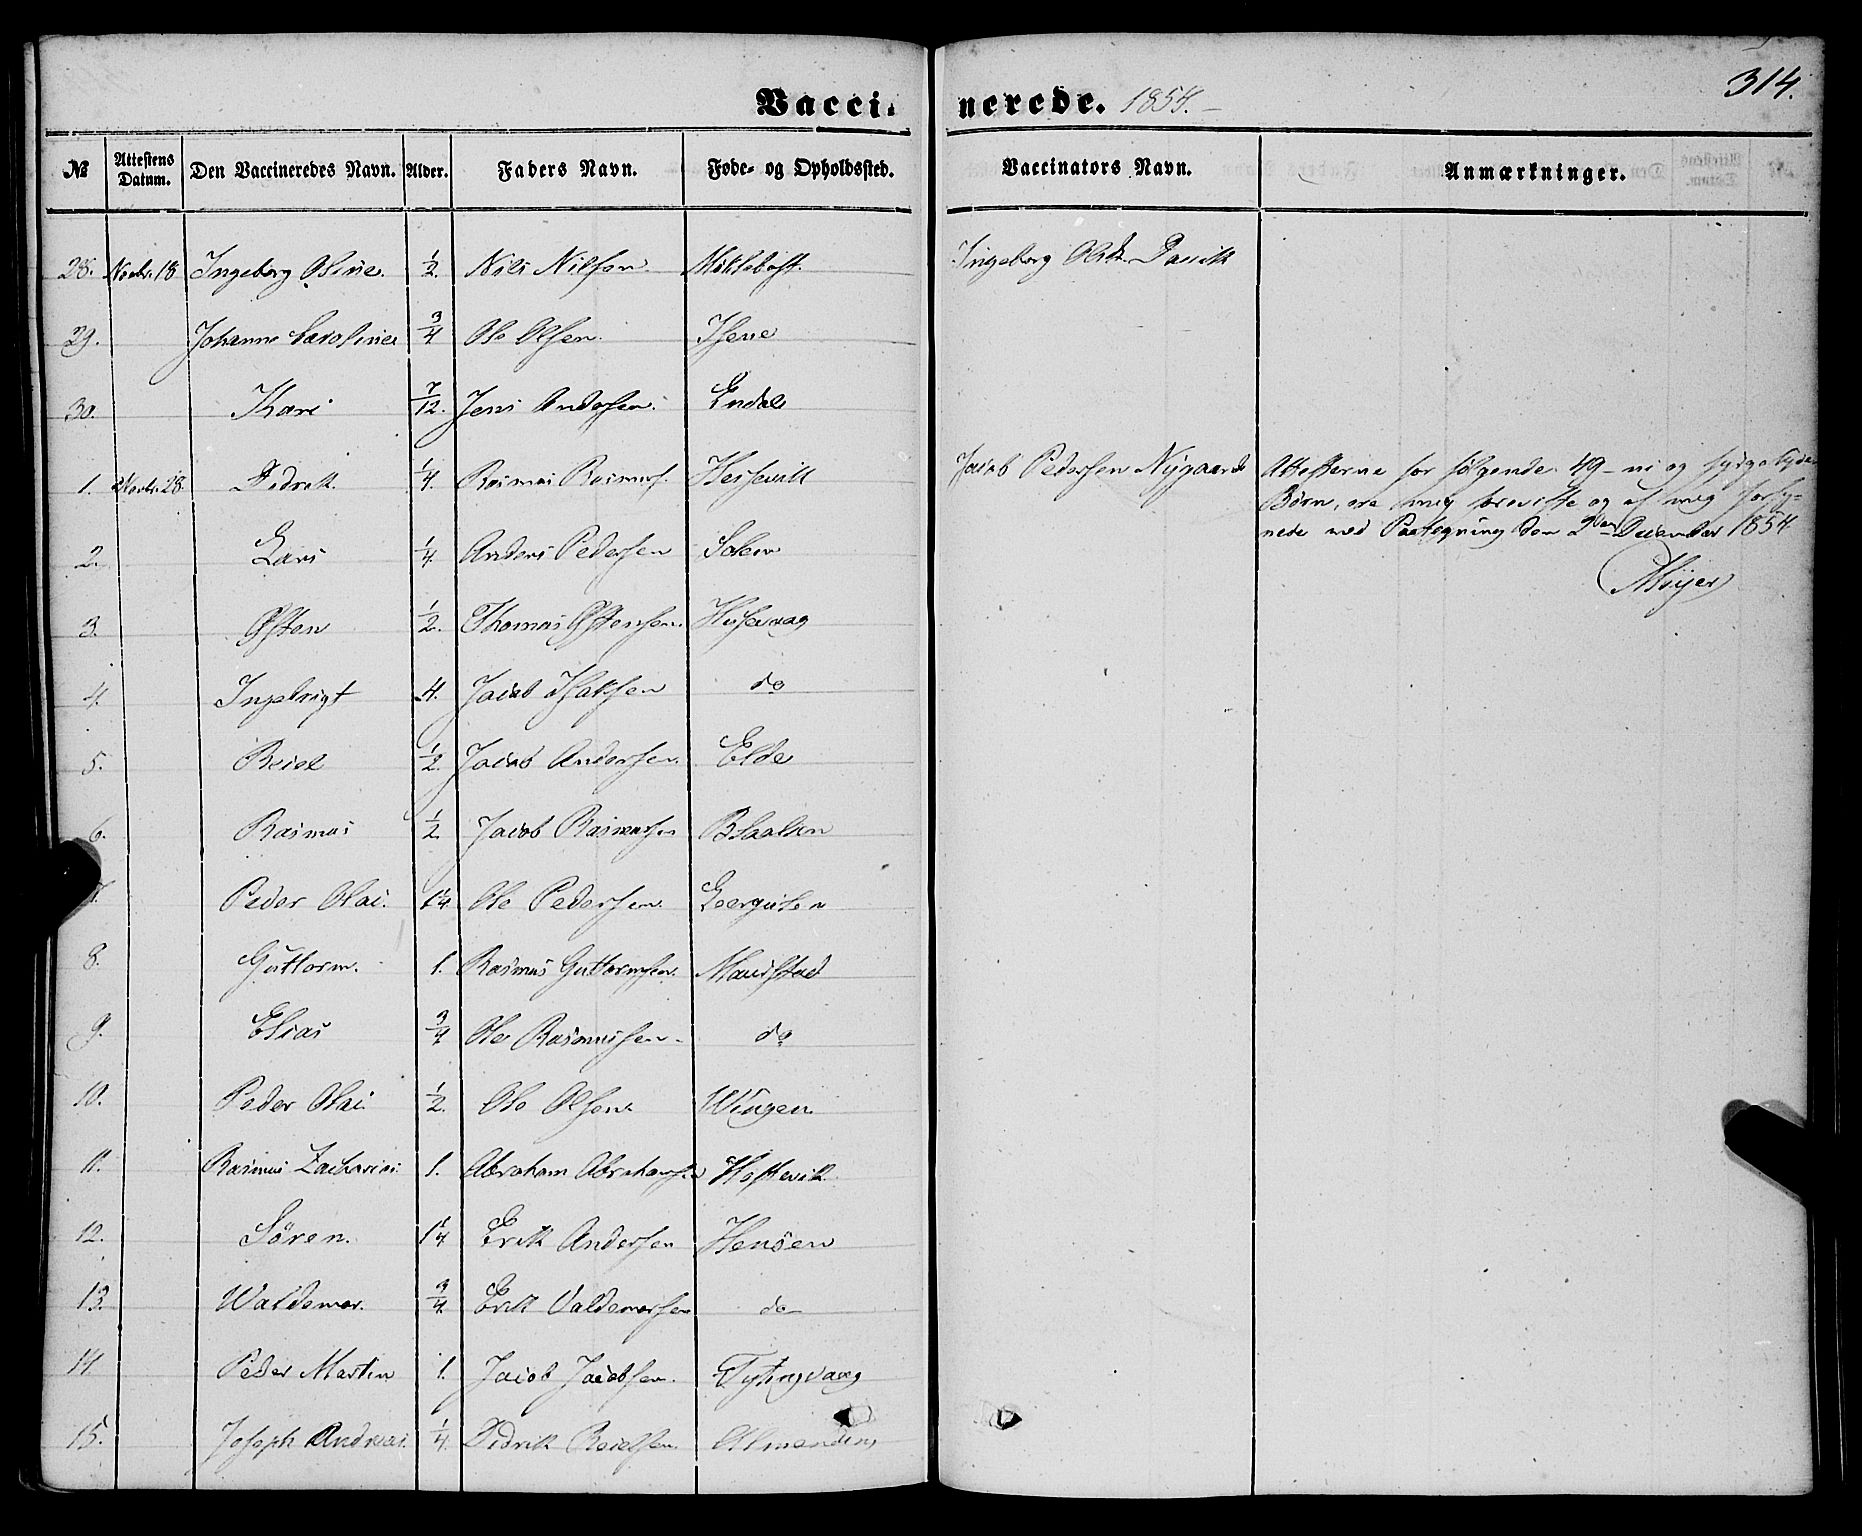 314.
Vaccinerede. 1854.
№ Attestens Datum. Den Vaccineredes Navn. Alder. Faders Navn. Føde- og Opholdssted. Vaccinators Navn. Anmærkninger.
28. Novbr. 18 Ingeborg Oline. 1/2. Nils Nilsen. Myklebost. Ingeborg
29. Johanne Caroline 3/4 Ole Olsen. Isene
30. Kari 7/12. Jens Andersen. Endal
1. Novbr. 28. Didrik 1/4. Rasmus Rasmuss. Hessevik Jacob Pedersen Nygaard Attesterne for følgende 49 - ni og fyrgetyve
Børn, ere mig foreviste og af mig forsy-
nede med Paategning den 2den December 1854
2. Lars 1/4. Anders Pedersen Solem
3. Østen 1/2. Thomas Østensen. Husevaag
4. Ingebrigt 4. Jacob Isaksen do
5. Reiel 1/2. Jacob Andersen. Elde
6. Rasmus 1/2. Jacob Rasmussen Blaalien
7. Peder Olai. 1 1/4 Ole Pedersen.
8. Guttorm. 1. Rasmus Guttormsen. Maurstad
9. Elias 3/4 Ole Rasmussen. do
10. Peder Olai 1/2. Ole Olsen. Vingen
11. Rasmus Zacharias. 1. Abraham Abrahamsen
12. Sören. 1 1/4 Erik Andersen Hensøen
13. Waldemar. 3/4 Erik Valdemarsen do
14. Peder Martin 1. Jacob Jacobsen. Tytingvaag
15. Joseph Andreas. 1/4. Didrik Reielsen. Almending